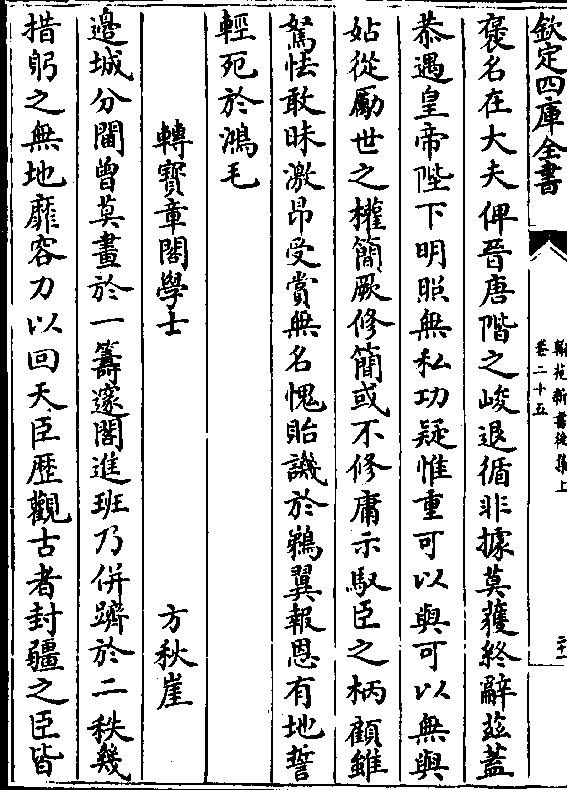 欽定四庫全書
翰苑新書後集上
卷二十五
褒名在大夫俾晉唐階之峻退循非據莫獲終辭茲蓋
恭遇皇帝陛下明照無私功疑惟重可以與可以無與
姑從勵世之權簡厥修簡或不修庸示馭臣之柄顧雖
駑怯敢昧激昂受賞無名愧貽譏於鵜翼報恩有地誓
輕死於鴻毛
轉寳章閣學士 方秋崖
邊城分閫曾莫畫於一籌邃閣進班乃併躋於二秩幾
措躬之無地靡容力以回天臣歷觀古者封疆之臣皆